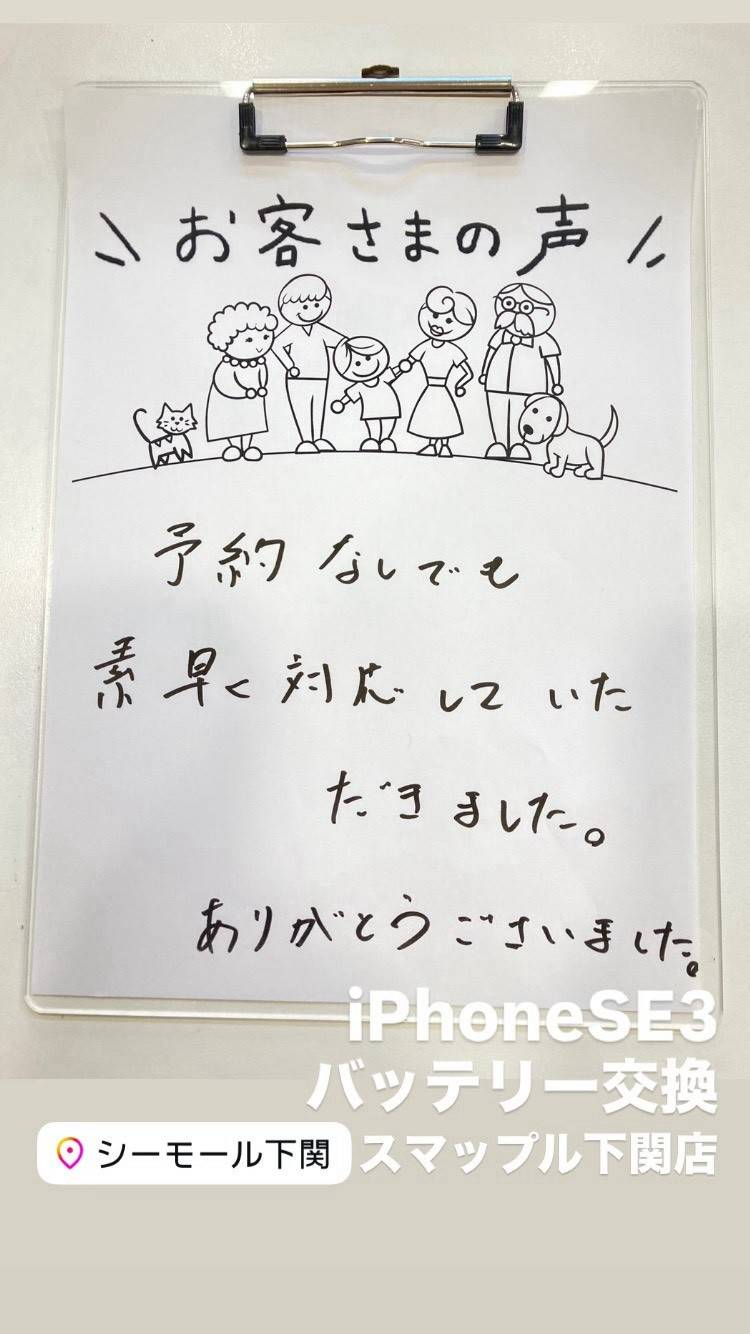 \\ お客さまの声 //
予約なしでも
素早く対応していた
だきました。
ありがとうございました。
iPhoneSE3
バッテリー交換
シーモール下関 スマップル下関店